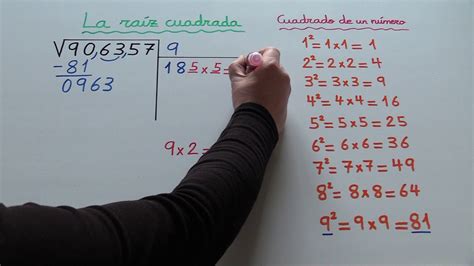 La raíz cuadrada
√90,63,57 9
-81 185×5=
0963
9×2=
Cuadrado de un número
1²=1×1=1
2²=2×2=4
3²=3×3=9
4²=4×4=16
5²=5×5=25
6²=6×6=36
7²=7×7=49
8²=8×8=64
9²=9×9=81